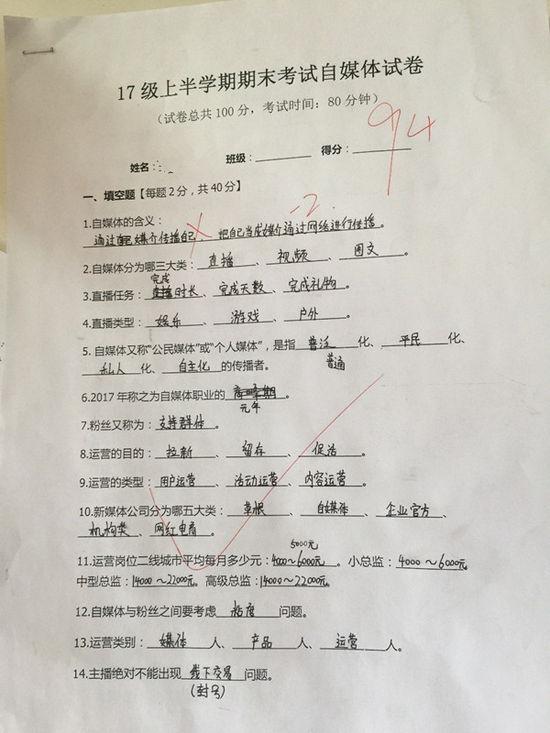 17级上半学期期末考试自媒体试卷
（试卷总共100分，考试时间：80分钟）
94
姓名： 班级： 得分：
一、填空题【每题2分，共40分】
-2
1.自媒体的含义：
通过自己媒介传播自己、把自己当成媒介通过网络进行传播。
2.自媒体分为哪三大类：直播、视频、图文。
完成
3.直播任务：时长、完成天数、完成礼物。
4.直播类型：娱乐、游戏、户外。
5.自媒体又称“公民媒体”或“个人媒体”，是指普泛化、平民化、
普通
私人化、自主化的传播者。
6.2017年称之为自媒体职业的。
元年
7.粉丝又称为：支持群体。
8.运营的目的：拉新、留存、促活。
9.运营的类型：用户运营、活动运营、内容运营。
10.新媒体公司分为哪五大类：草根、自媒体、企业官方、
机构类、网红电商。
5000元
11.运营岗位二线城市平均每月多少元：4000~6000元。小总监：4000~6000
中型总监：14000~22000元。高级总监：14000~22000元。
12.自媒体与粉丝之间要考虑粘度问题。
13.运营类别：媒体人、产品人、运营人。
14.主播绝对不能出现线下交易问题。
(封号)